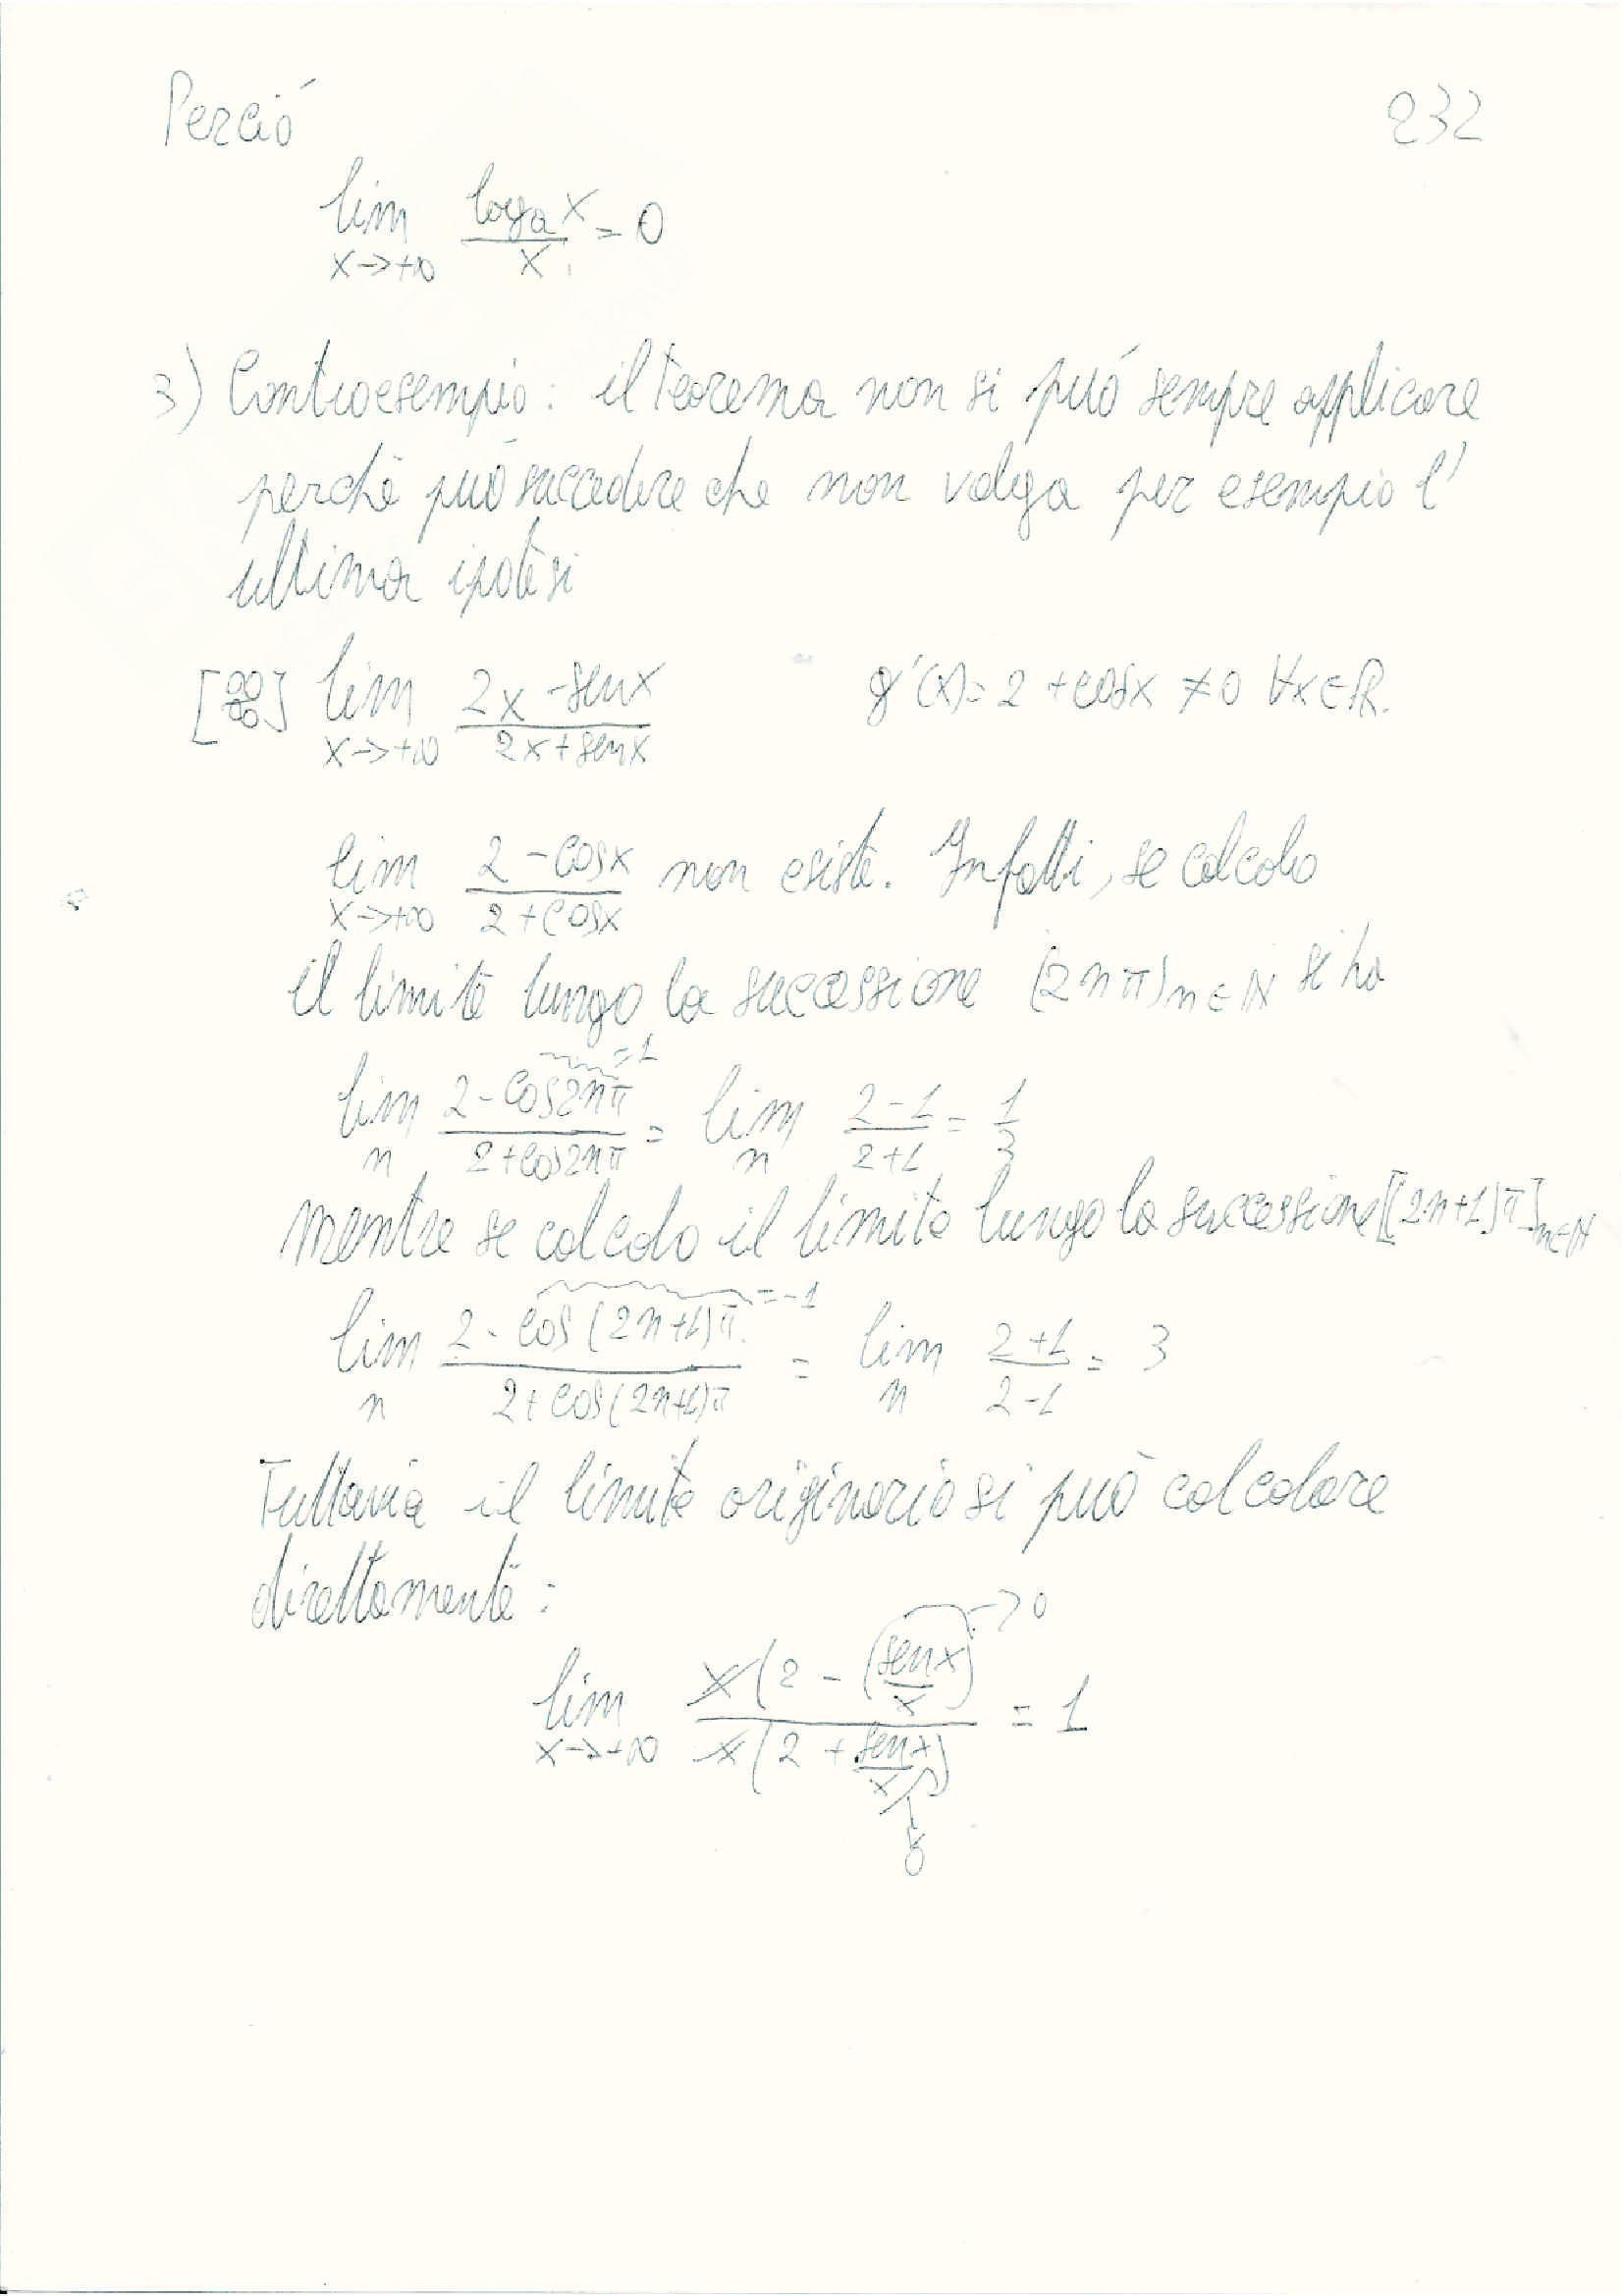 Perció 232
lim x→+∞ log_a x / x = 0
3) Controesempio: il teorema non si puó sempre applicare
perchè puó succedere che non valga per esempio l'
ultima ipotesi
[∞/∞] lim x→+∞ (2x - sen x)/(2x + sen x) g'(x) = 2 + cos x ≠ 0 ∀x∈ℝ.
lim x→+∞ (2 - cos x)/(2 + cos x) non esiste. Infatti, se calcolo
il limite lungo la successione (2nπ)n∈ℕ si ha
lim n (2 - cos 2nπ)/(2 + cos 2nπ) = lim n (2-1)/(2+1) = 1/3 =1
mentre se calcolo il limite lungo la successione [(2n+1)π]n∈ℕ
lim n (2 - cos(2n+1)π)/(2 + cos(2n+1)π) = lim n (2+1)/(2-1) = 3 =-1
Tuttavia il limite originario si può calcolare
direttamente:
lim x→+∞ x(2 - (sen x/x))/x(2 + sen x/x) = 1 →0 ↓ 0